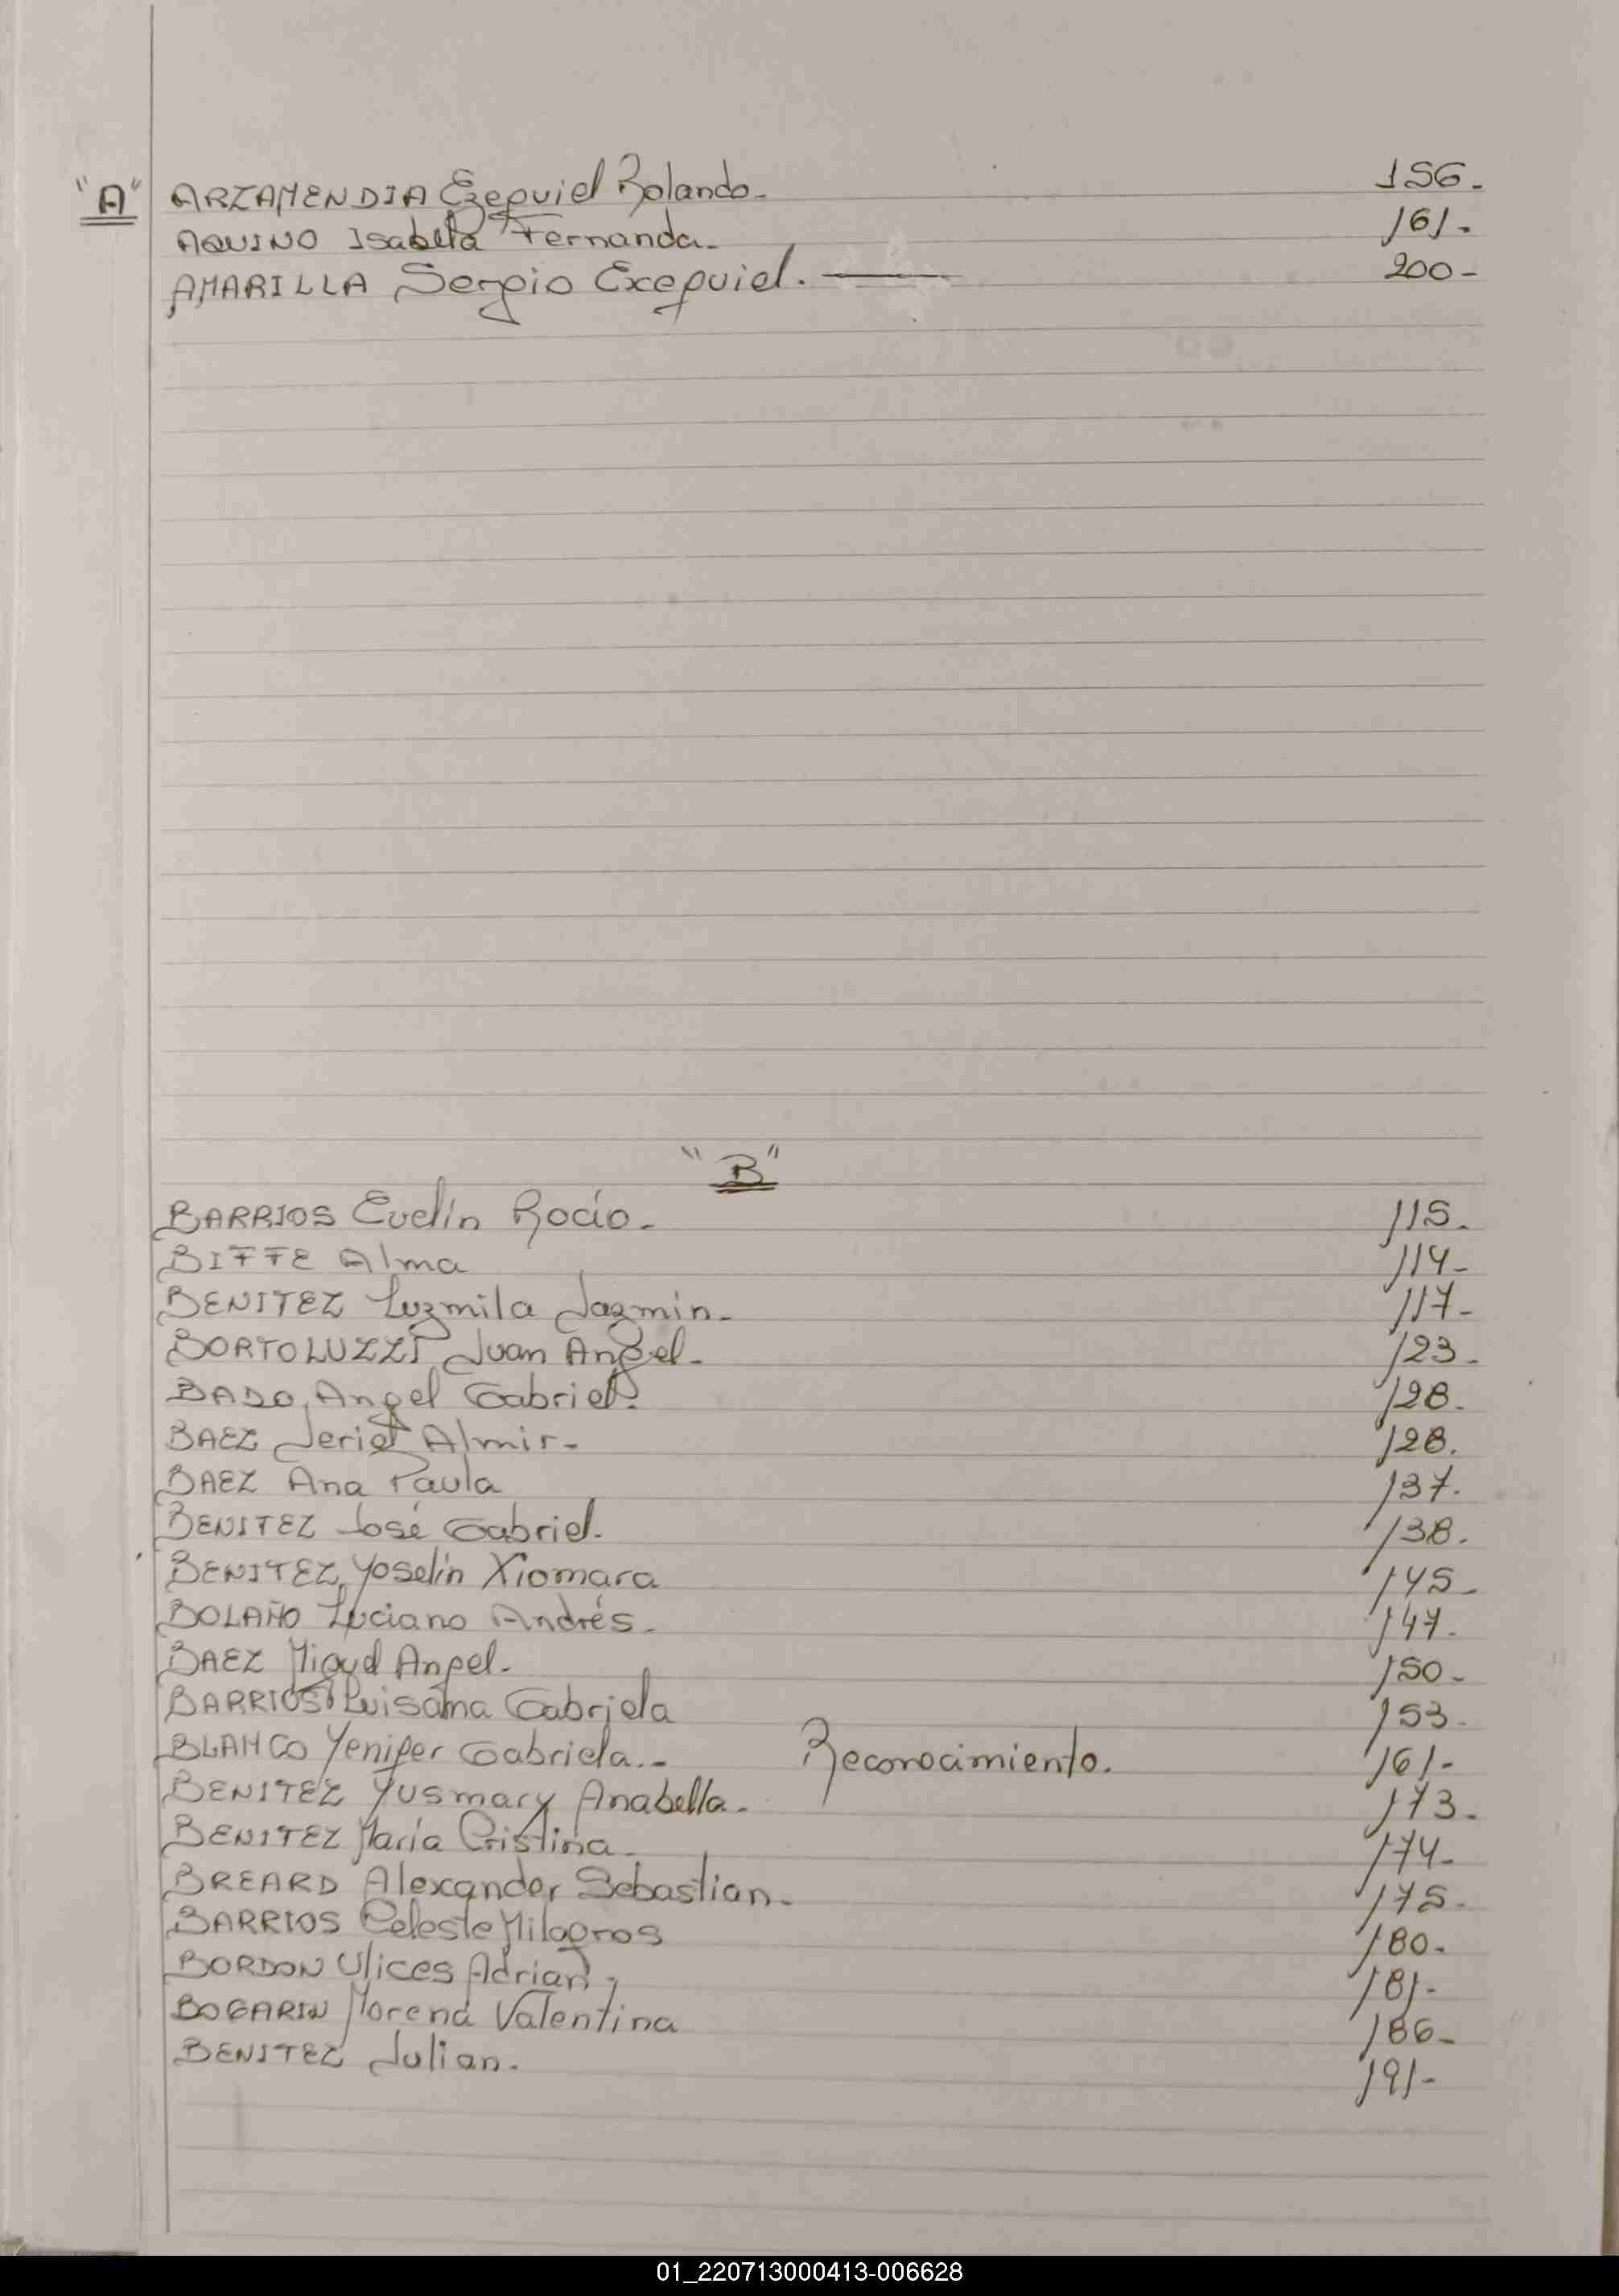 "A" ARZAMENDIA Ezequiel Rolando. 156.
AQUINO Isabella Fernanda. 161.
AMARILLA Sergio Exequiel. 200-
"B"
BARRIOS Evelin Rocío. 115.
BIFFE Alma 114-
BENITEZ Luzmila Jazmín. 117-
BORTOLUZZI Juan Angel. 123.
BADO, Angel Gabriel. 128.
BAEZ Almir. 128.
BAEZ Ana Paula 137.
BENITEZ José Gabriel. 138.
BENITEZ, Yoselín Xiomara 145-
BOLAÑO Luciano Andrés. 147.
BAEZ Miguel Angel. 150-
BARRIOS Luisana Gabriela 153-
BLANCO Yenifer Gabriela.- Reconocimiento. 161-
BENITEZ Yusmary Anabella. 173.
BENITEZ María Cristina. 174-
BREARD Alexander Sebastian. 175-
BARRIOS Celeste Milagros 180-
BORDON Ulices Adrian, 181-
BOGARIN Morena Valentina 186-
BENITEZ Julian. 191-
01_220713000413-006628